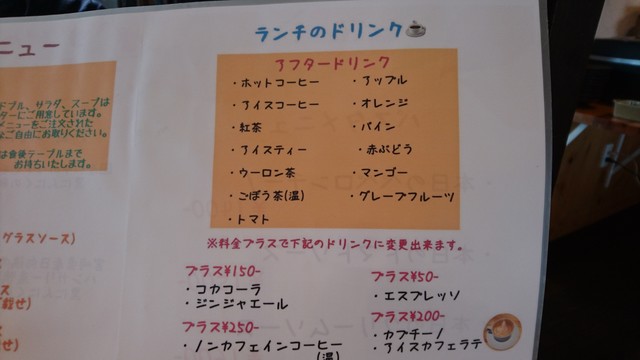 ニュー
ドブル、サラダ、スープは
ターにご用意しています。
メニューをご注文された
ご自由にお取りください。
は食後テーブルまで
お持ちいたします。
グラスソース)
ランチのドリンク
アフタードリンク
・ホットコーヒー
・アイスコーヒー
・紅茶
・アイスティー
・ウーロン茶
・ごぼう茶(温)
・トマト
・アップル
・オレンジ
・パイン
・赤ぶどう
・マンゴー
・グレープフルーツ
※料金プラスで下記のドリンクに変更出来ます。
プラス¥150-
・コカコーラ
・ジンジャエール
プラス¥250-
・ノンカフェインコーヒー
(温)
プラス¥50-
・エスプレッソ
プラス¥200-
・カプチーノ
・アイスカフェラテ